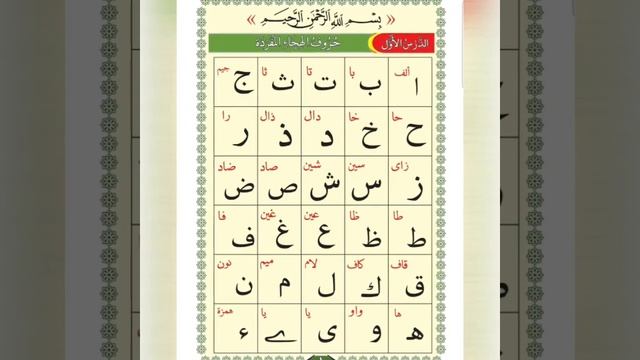 بِسْمِ اللهِ الرَّحْمٰنِ الرَّحِيْمِ
الدَّرْسُ الْأَوَّل حُرُوفُ الهِجَاءِ المُفْرَدَة
الف با تا ثا جيم
ا ب ت ث ج
حا خا دال ذال را
ح خ د ذ ر
زای سين شين صاد ضاد
ز س ش ص ض
طا ظا عين غين فا
ط ظ ع غ ف
قاف كاف لام ميم نون
ق ك ل م ن
ها واو يا يا همزة
ه و ى ے ء